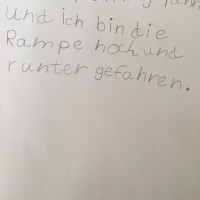 und ich bin die
Rampe hoch und
runter gefahren.